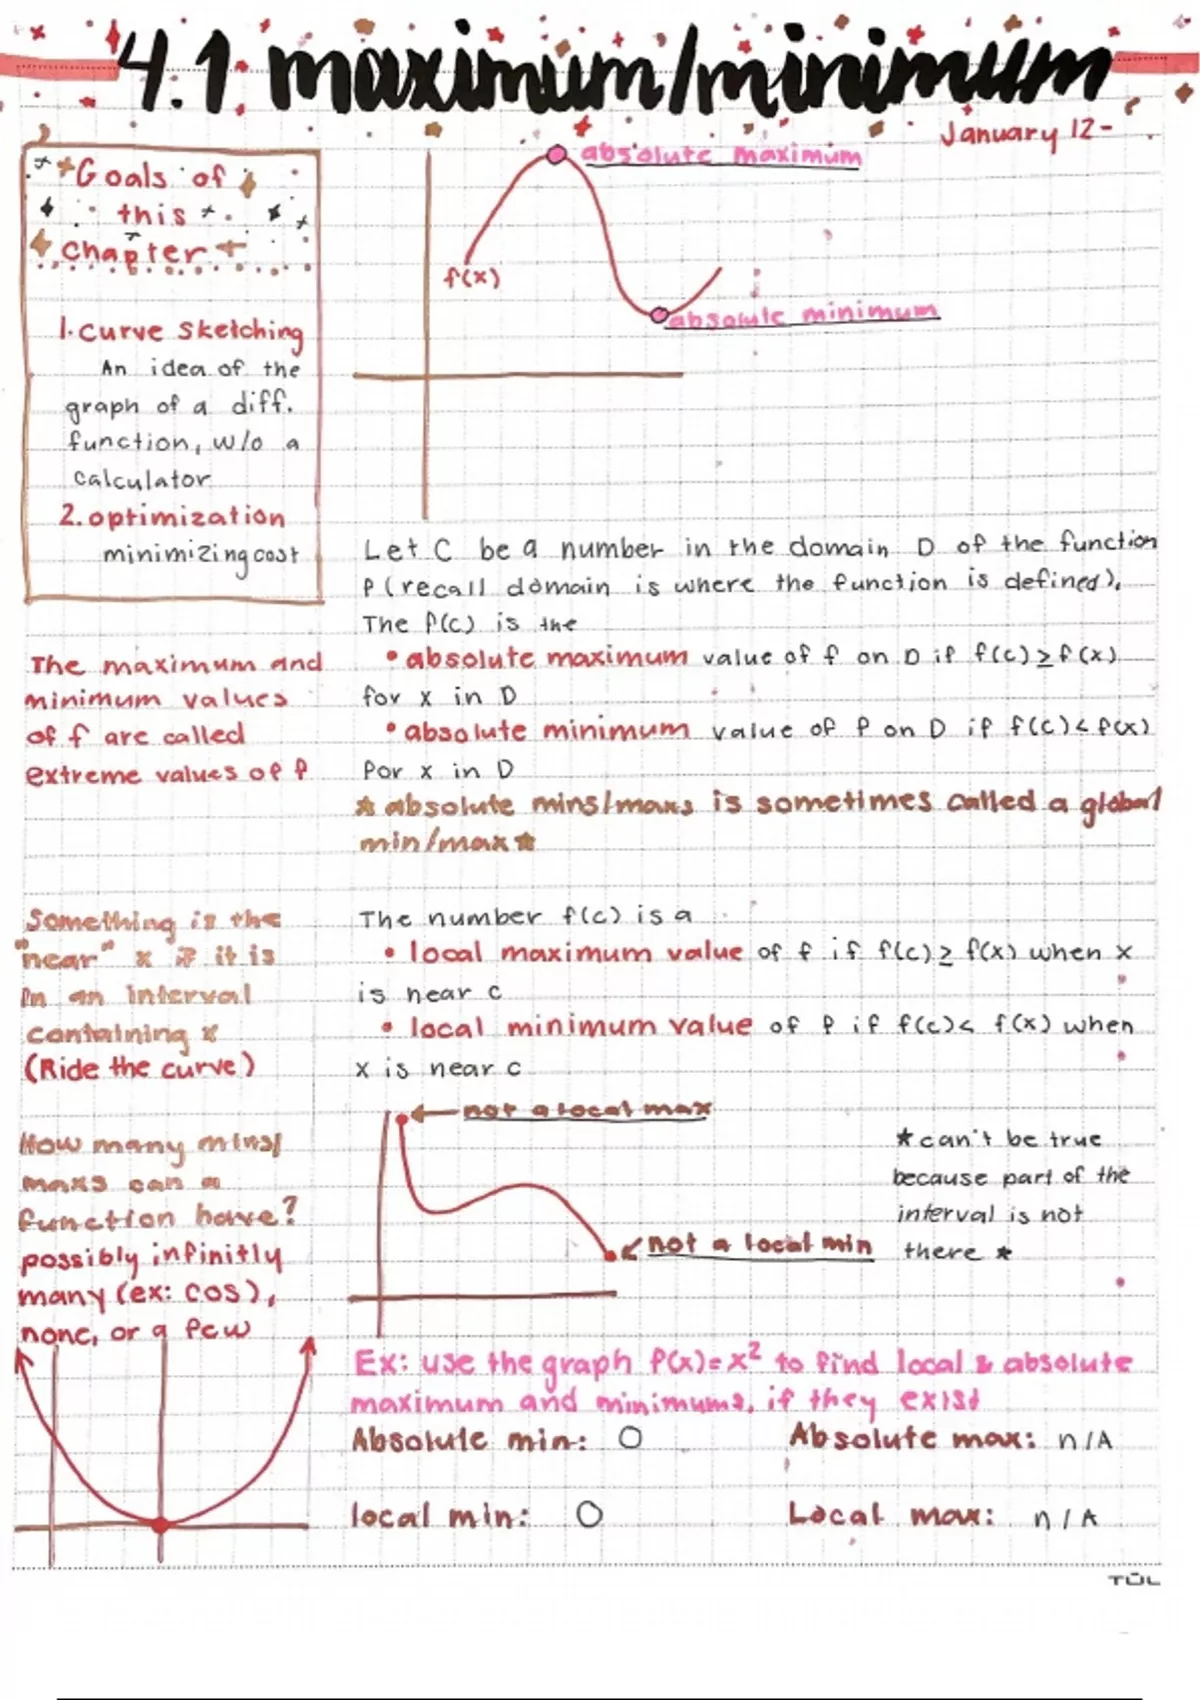 4.1 maximum/minimum
January 12-
Goals of
this
chapter
1. curve sketching
An idea of the
graph of a diff.
function, w/o a
calculator
2. optimization
minimizing cost
absolute maximum
f(x)
absolute minimum
The maximum and
minimum values
of f are called
extreme values of f
Let C be a number in the domain D of the function
f (recall domain is where the function is defined).
The f(c) is the
• absolute maximum value of f on D if f(c) ≥ f(x)
for x in D
• absolute minimum value of f on D if f(c) < f(x)
for x in D
★ absolute mins/maxs is sometimes called a global
min/max ★
Something is the
"near" x if it is
in an interval
containing x
(Ride the curve)
The number f(c) is a
• local maximum value of f if f(c) ≥ f(x) when x
is near c
• local minimum value of f if f(c) < f(x) when
x is near c
How many mins/
maxs can a
function have?
possibly infinitly
many (ex: cos),
none, or a few
not a local max
not a local min
★ can't be true
because part of the
interval is not
there ★
Ex: use the graph f(x)=x² to find local & absolute
maximum and minimums, if they exist
Absolute min: 0 Absolute max: n/A
local min: 0 Local max: n/A
TŪL